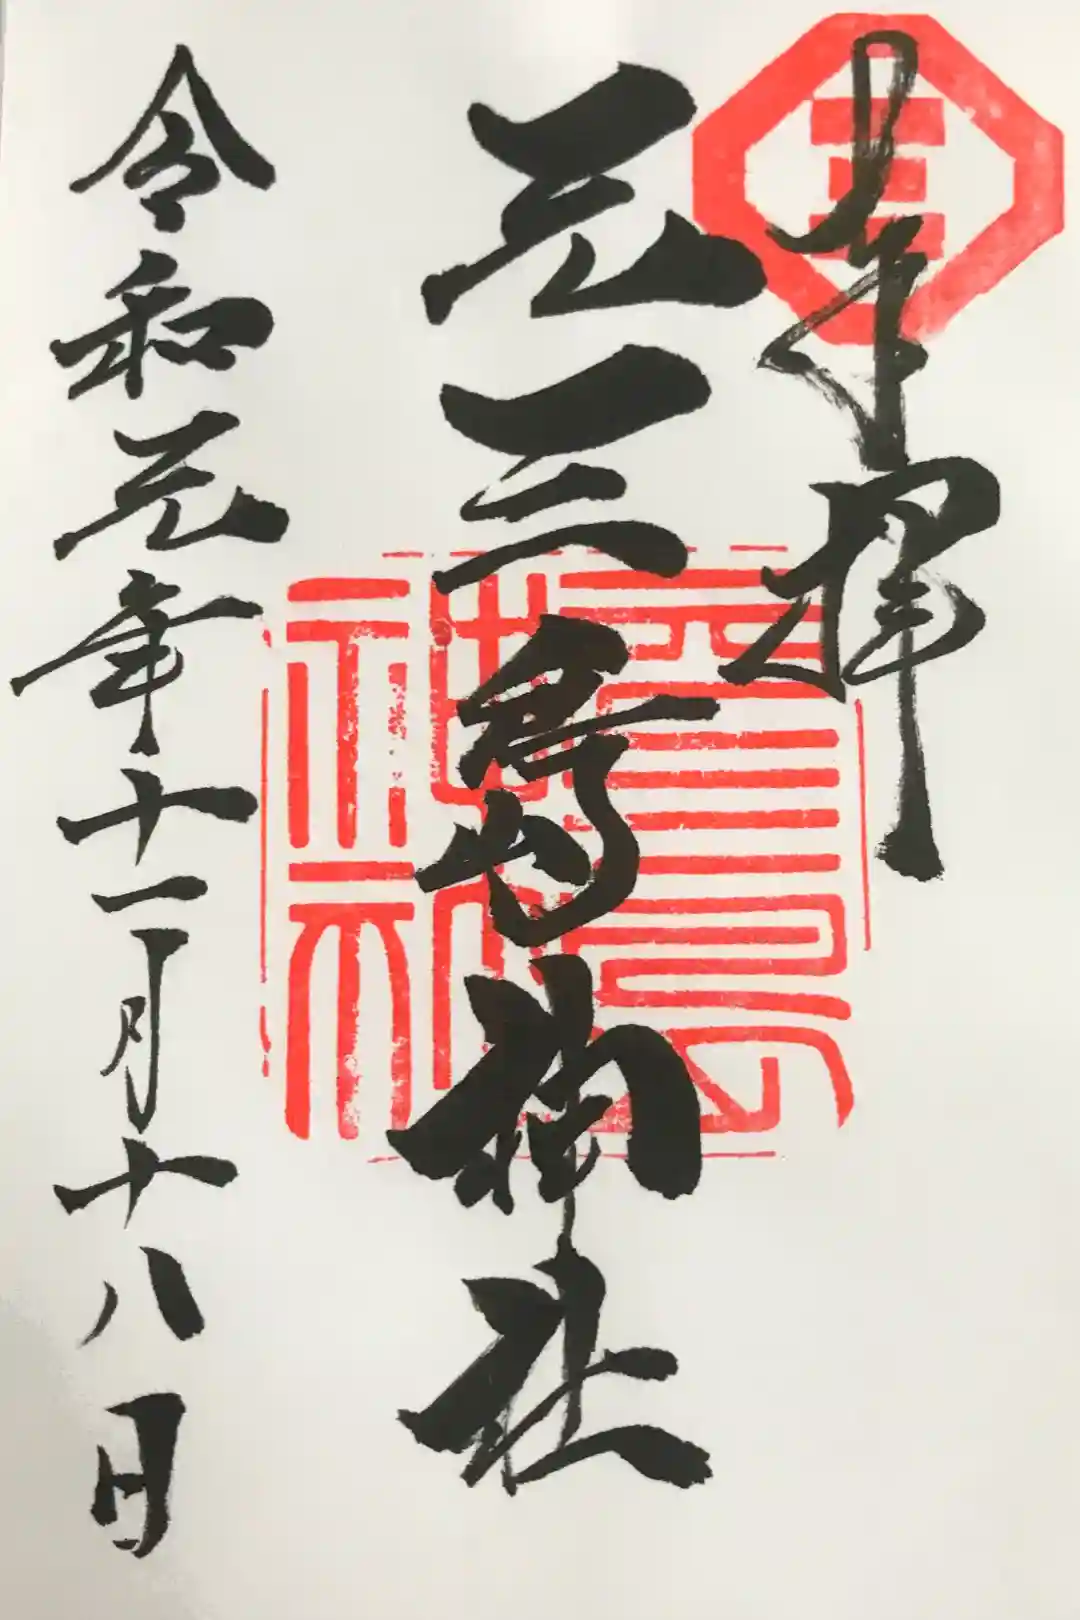 奉拝
元三島神社
三島神社
令和元年十一月十八日